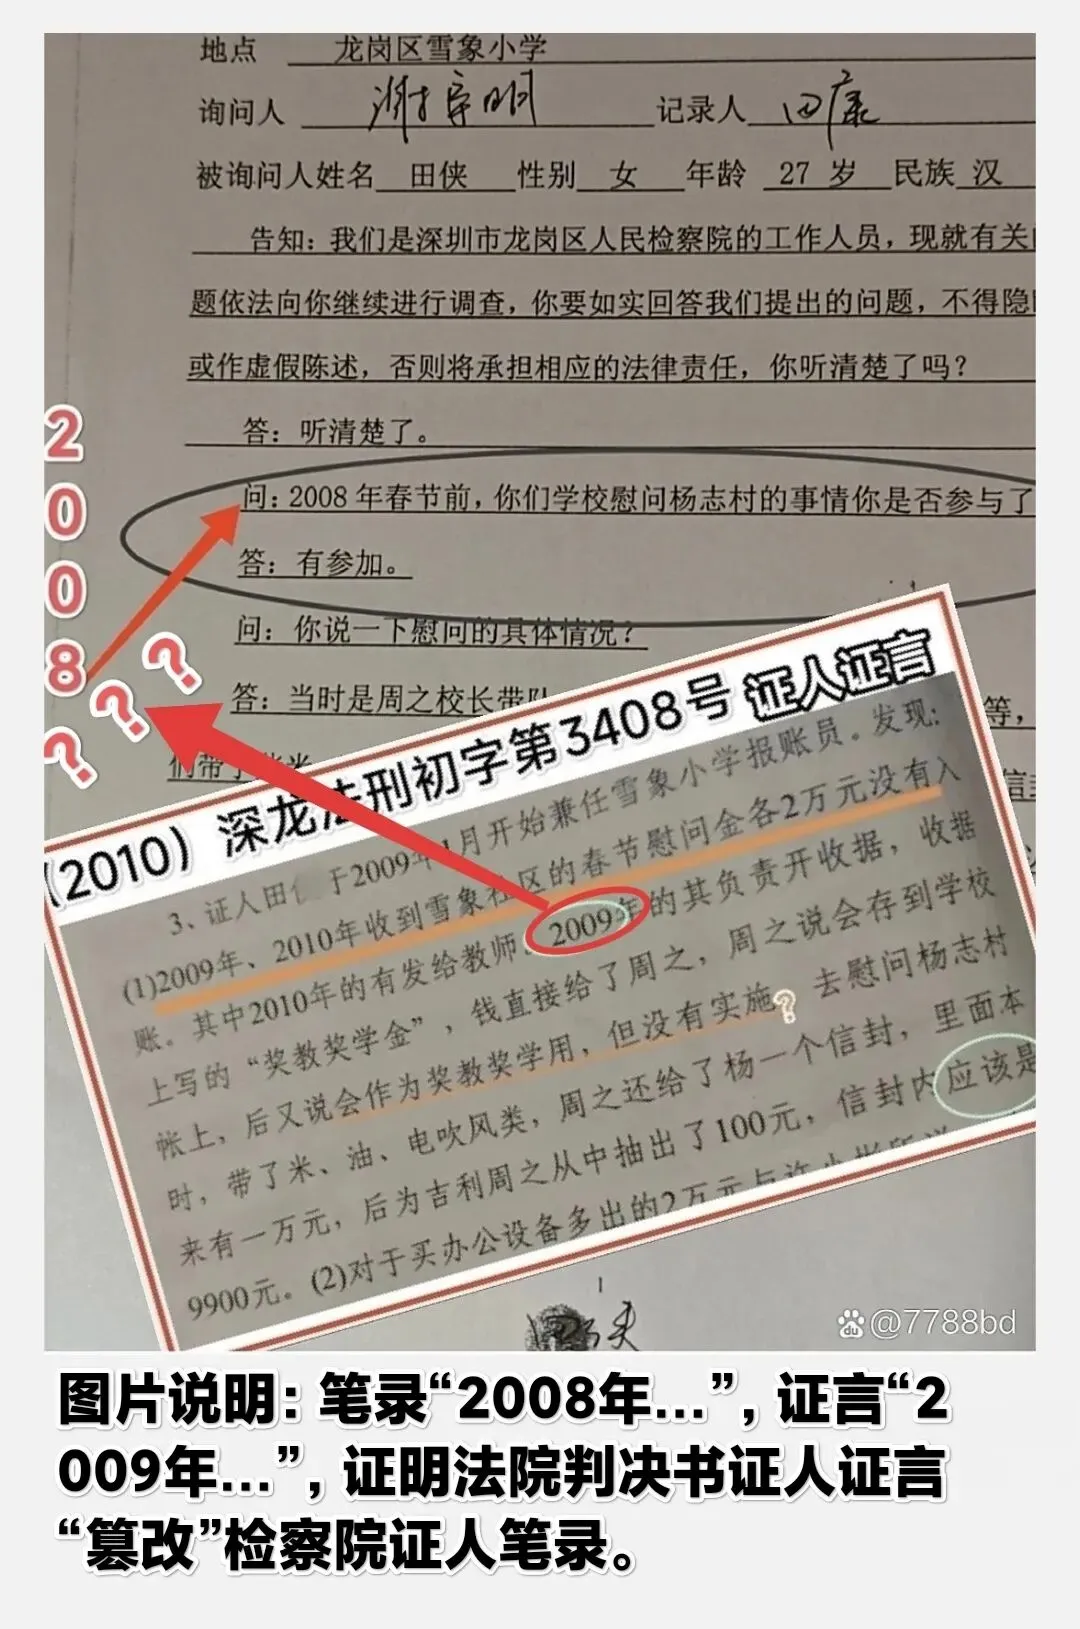 地点 龙岗区雪象小学
询问人 记录人 田康
被询问人姓名 田侠 性别 女 年龄 27 岁 民族 汉
告知：我们是深圳市龙岗区人民检察院的工作人员，现就有关
题依法向你继续进行调查，你要如实回答我们提出的问题，不得隐
或作虚假陈述，否则将承担相应的法律责任，你听清楚了吗？
答：听清楚了。
问：2008年春节前，你们学校慰问杨志村的事情你是否参与了
答：有参加。
问：你说一下慰问的具体情况？
答：当时是周之校长带队
等，
们带了
2008？
？
？
（2010）深龙法刑初字第3408号 证人证言
3、证人田 于2009年1月开始兼任雪象小学报账员。发现：
(1)2009年、2010年收到雪象社区的春节慰问金各2万元没有入
账。其中2010年的有发给教师，2009年的其负责开收据，收据
上写的“奖教奖学金”，钱直接给了周之，周之说会存到学校
帐上，后又说会作为奖教奖学用，但没有实施？去慰问杨志村
时，带了米、油、电吹风类，周之还给了杨一个信封，里面本
来有一万元，后为吉利周之从中抽出了100元，信封内应该是
9900元。(2)对于买办公设备多出的2万元与许
1
@7788bd
图片说明：笔录“2008年...”，证言“2
009年...”，证明法院判决书证人证言
“篡改”检察院证人笔录。